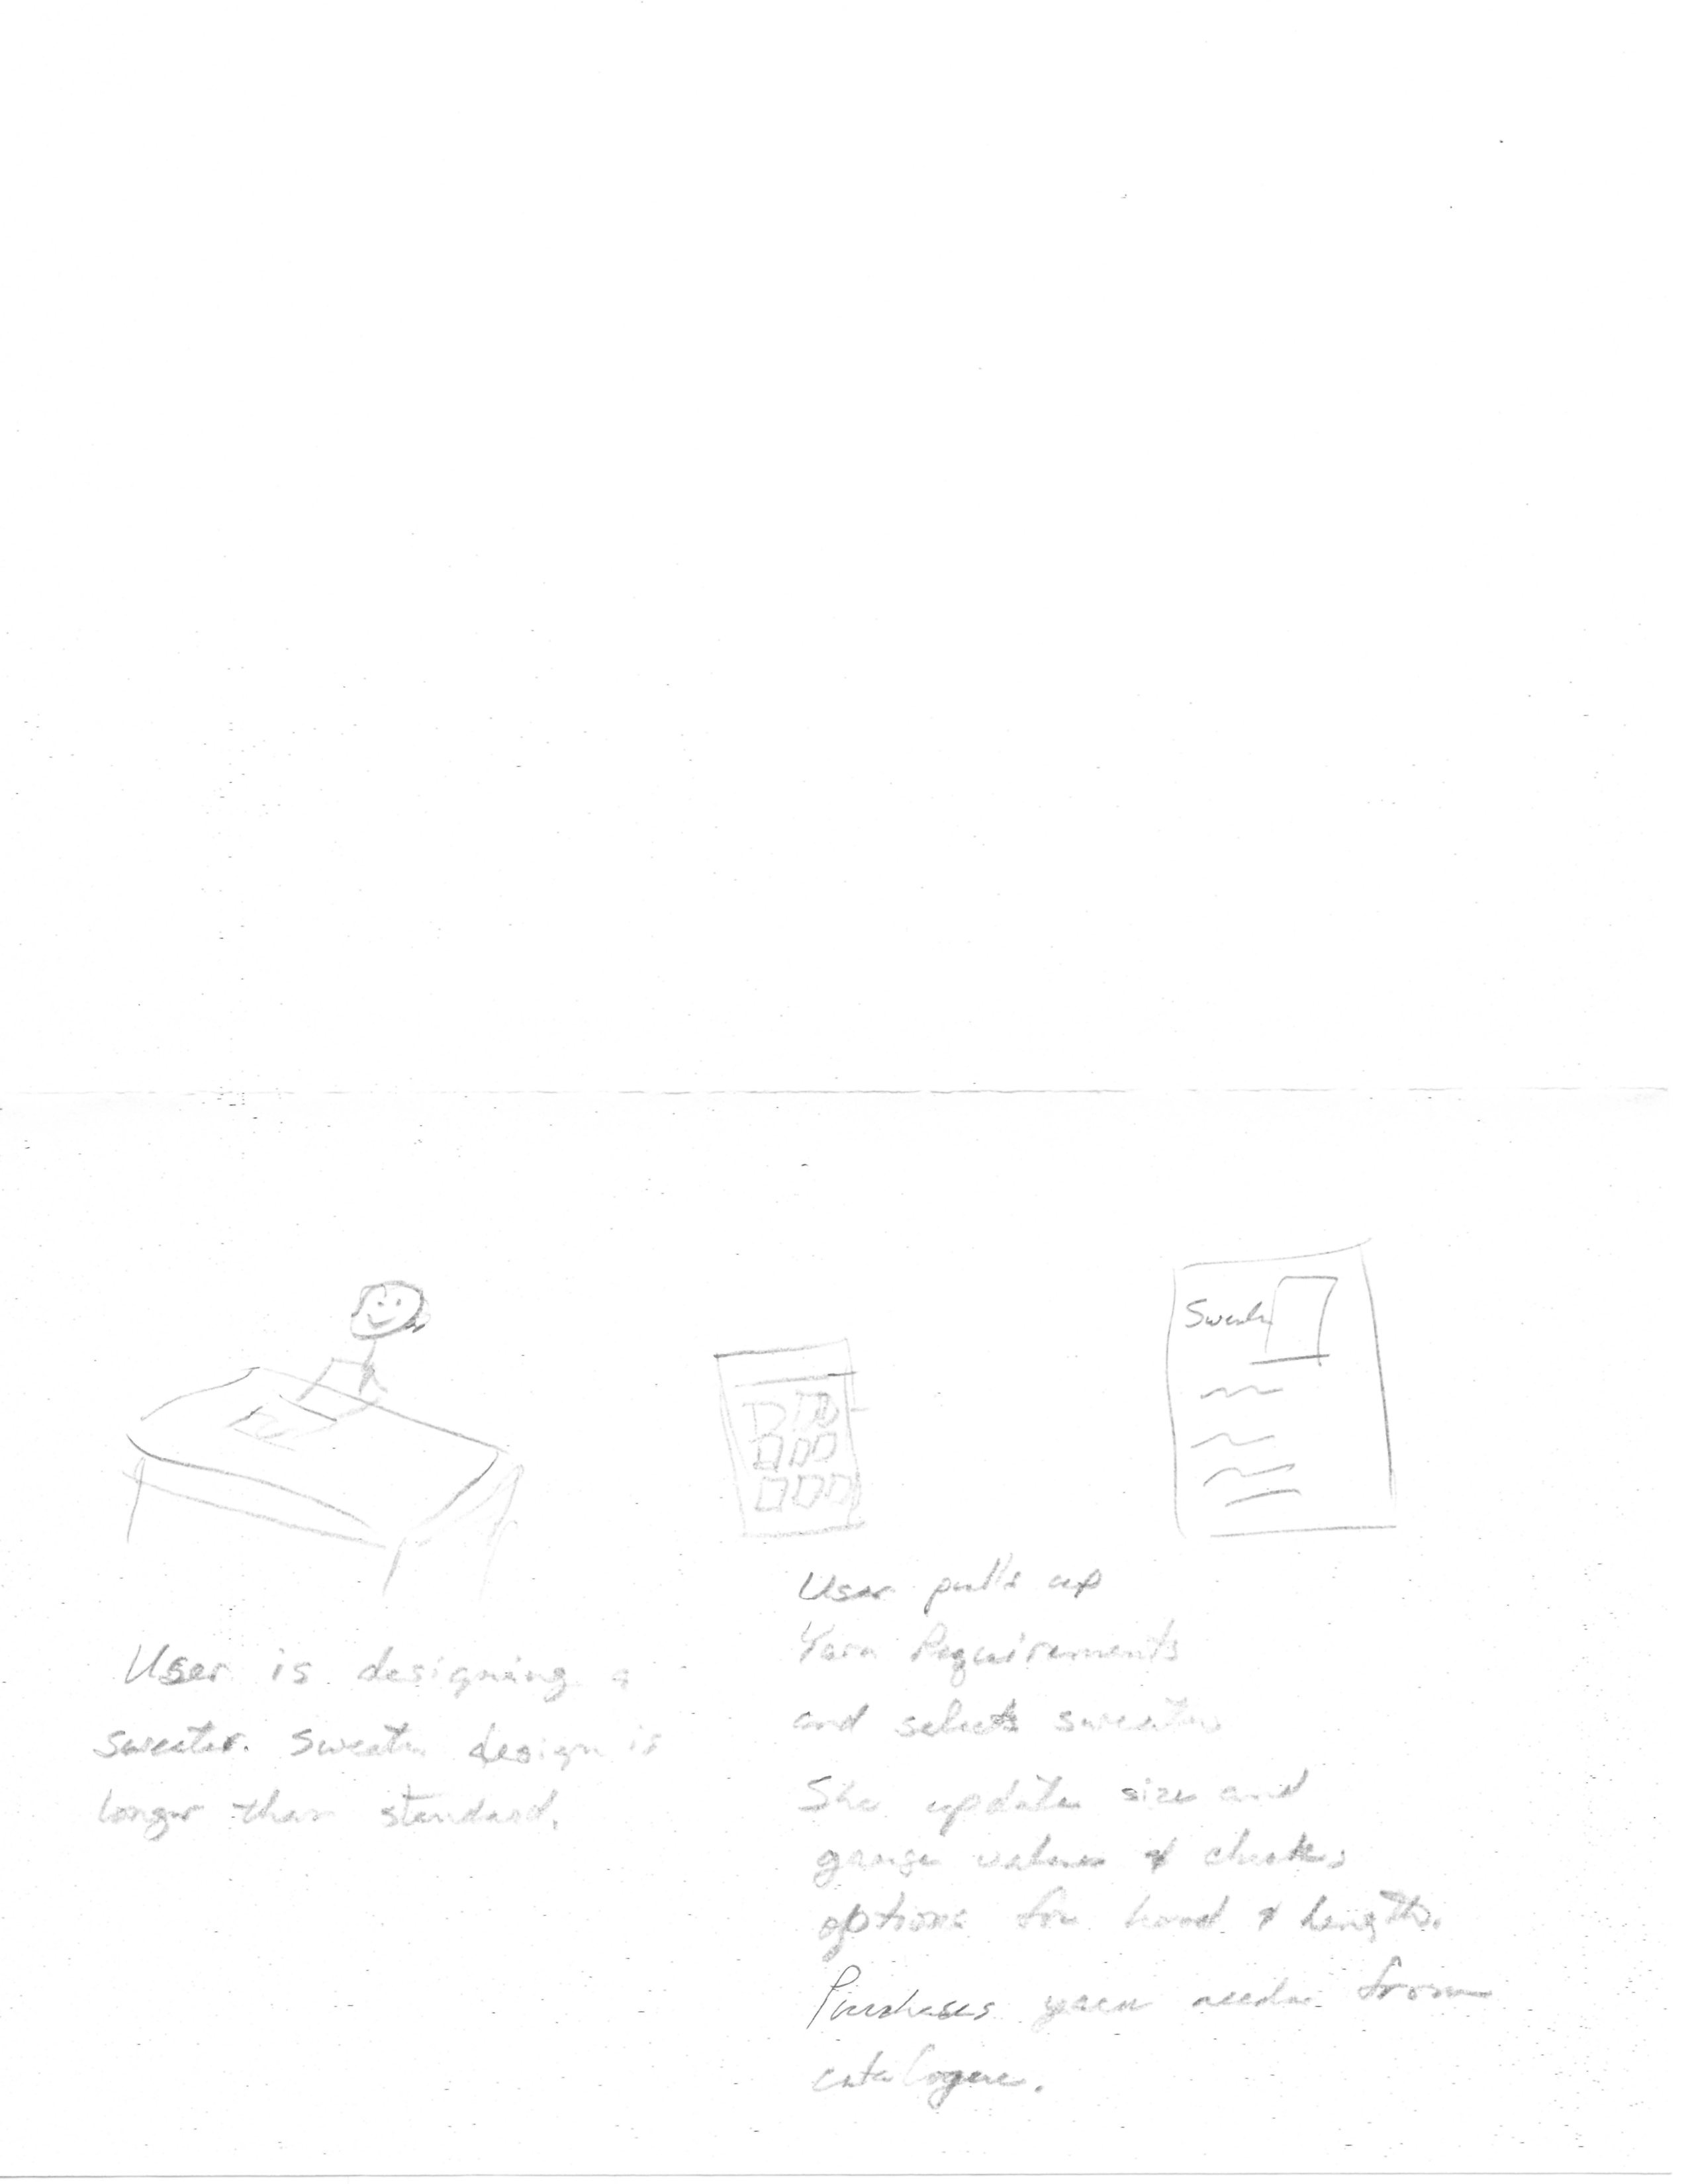 Sweater
User is designing a
sweater. Sweater design is
longer than standard.
User pulls up
Yarn Requirements
and selects sweater
She updates size and
gauge values & checks
options for hood & length.
Purchases yarn needs from
catalogue.